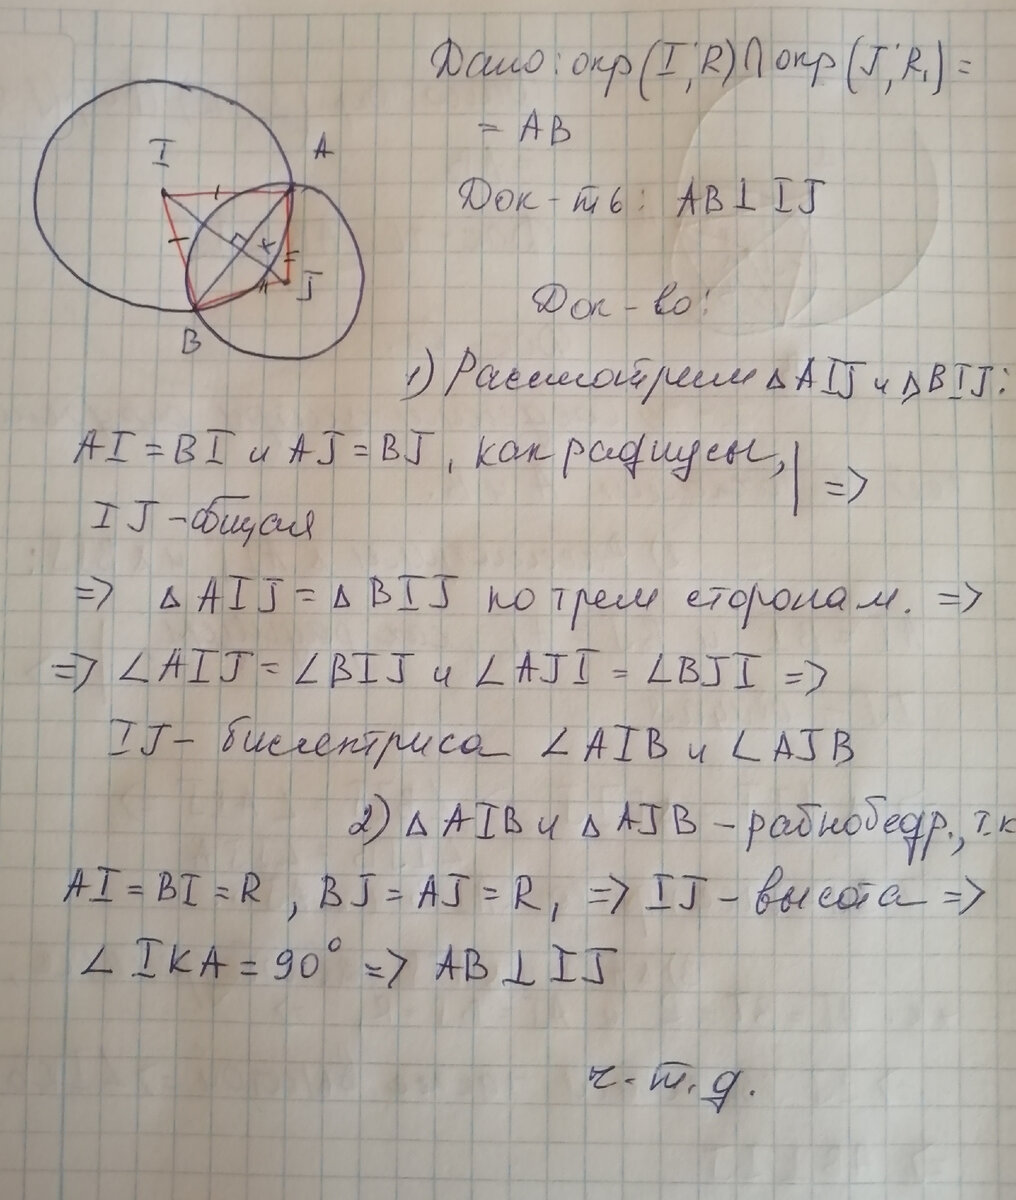 Дано: окр(I; R) ∩ окр(J; R₁) =
= AB
Док-ть: AB ⊥ IJ
I
A
K
J
B
Док-во:
1) Рассмотрим △AIJ и △BIJ:
AI = BI и AJ = BJ, как радиусы, | =>
IJ - общая
=> △AIJ = △BIJ по трем сторонам. =>
=> ∠AIJ = ∠BIJ и ∠AJI = ∠BJI =>
IJ - биссектриса ∠AIB и ∠AJB
2) △AIB и △AJB - равнобедр., т.к
AI = BI = R, BJ = AJ = R, => IJ - высота =>
∠IKA = 90° => AB ⊥ IJ
ч.т.д.